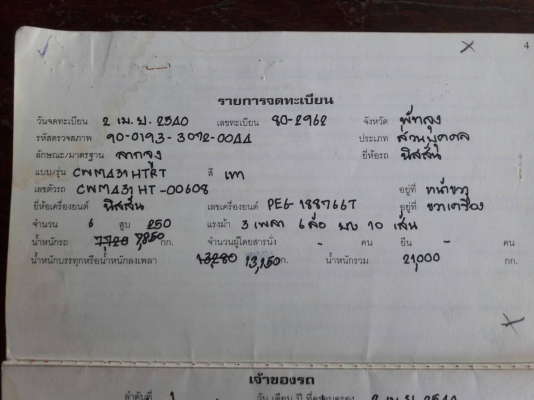 4
รายการจดทะเบียน
วันจดทะเบียน 2 เม.ย. 2540 เลขทะเบียน 80-2962 จังหวัด พัทลุง
รหัสตรวจสภาพ 90-0193-3072-0044 ประเภท ส่วนบุคคล
ลักษณะ/มาตรฐาน ลากจูง ยี่ห้อรถ นิสสัน
แบบ/รุ่น CWM431HTRT สี เทา
เลขตัวรถ CWM431HT-00608 อยู่ที่ หน้าขวา
ยี่ห้อเครื่องยนต์ นิสสัน เลขเครื่องยนต์ PE6-188766T อยู่ที่ ขวาเครื่อง
จำนวน 6 สูบ 250 แรงม้า 3 เพลา 6 ล้อ ยาง 10 เส้น
น้ำหนักรถ 7,720 7,850 กก. จำนวนผู้โดยสารนั่ง - คน ยืน - คน
น้ำหนักบรรทุกหรือน้ำหนักลงเพลา 13,280 13,150 ก. น้ำหนักรวม 21,000 กก.
เจ้าของรถ
ลำดับที่ 1 วัน เดือน ปี ที่ครอบครอง 2 เม.ย. 2540